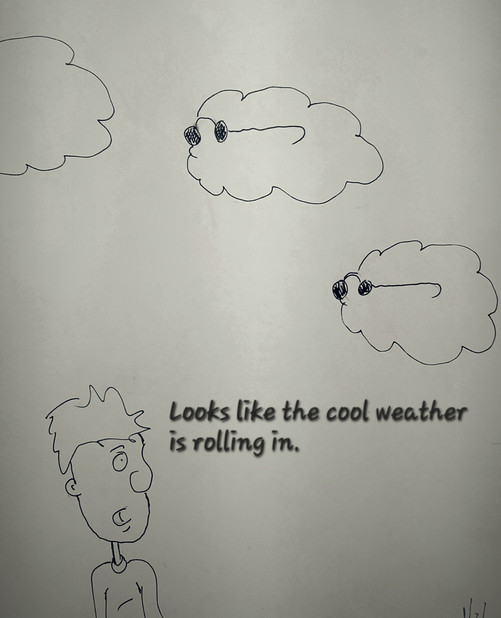 Looks like the cool weather
is rolling in.